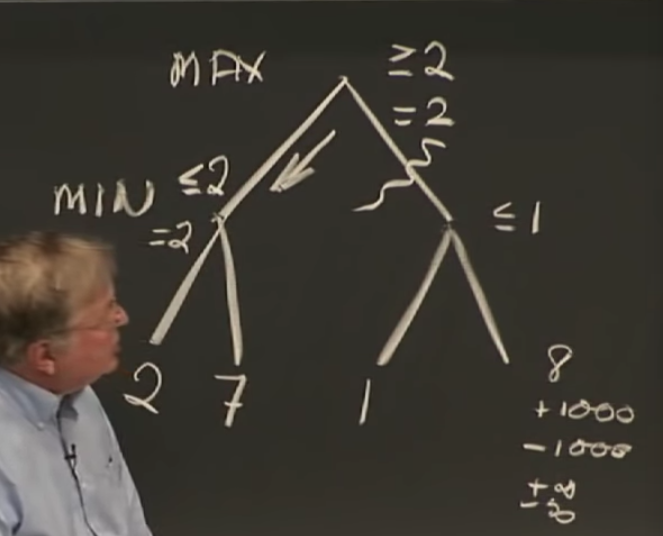 MAX
≥2
=2
MIN
≤2
=2
≤1
2
7
1
8
+1000
-1000
±∞